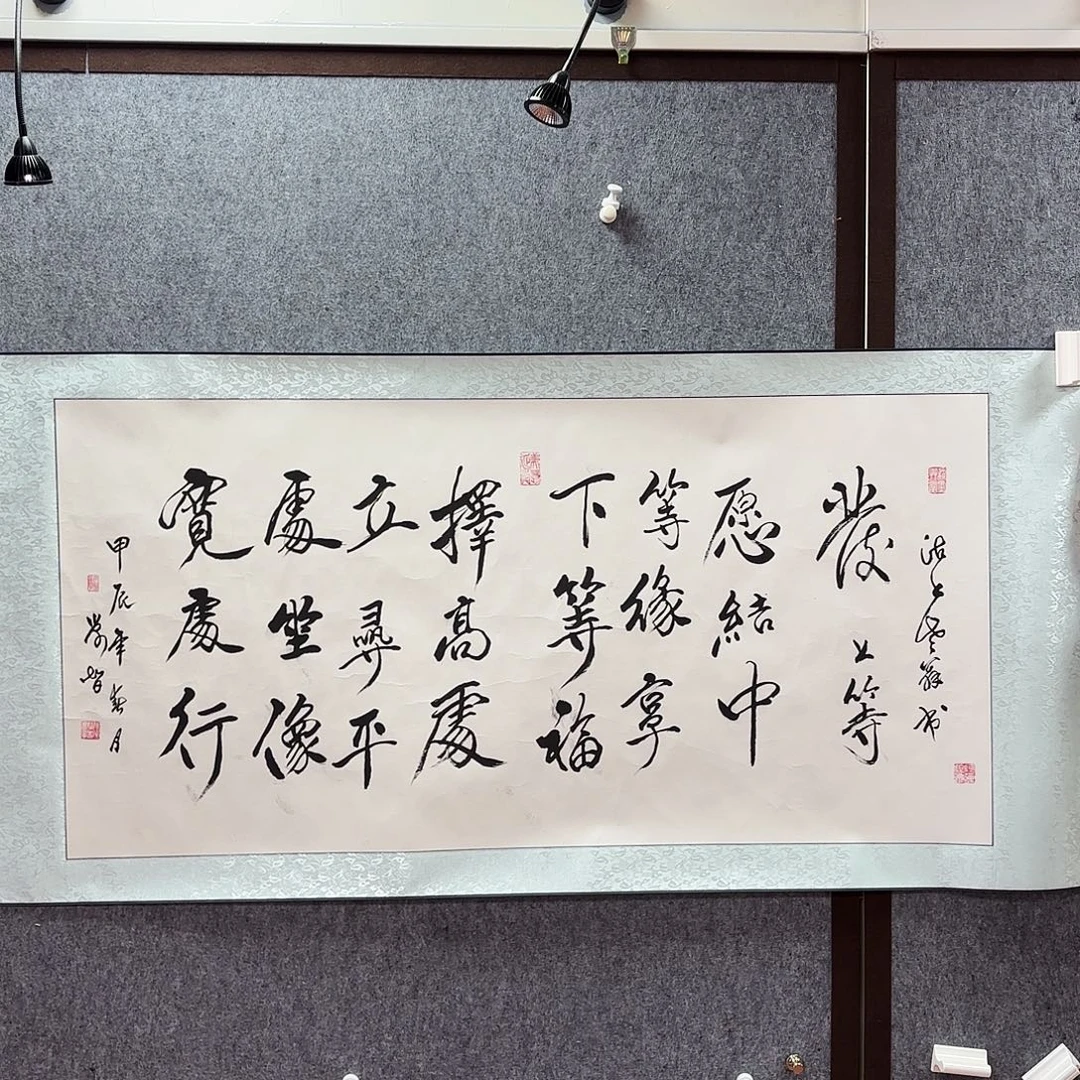 沽上翁书
發上等
愿結中
等緣享
下等福
擇高處
立尋平
處坐像
寬處行
甲辰年春月